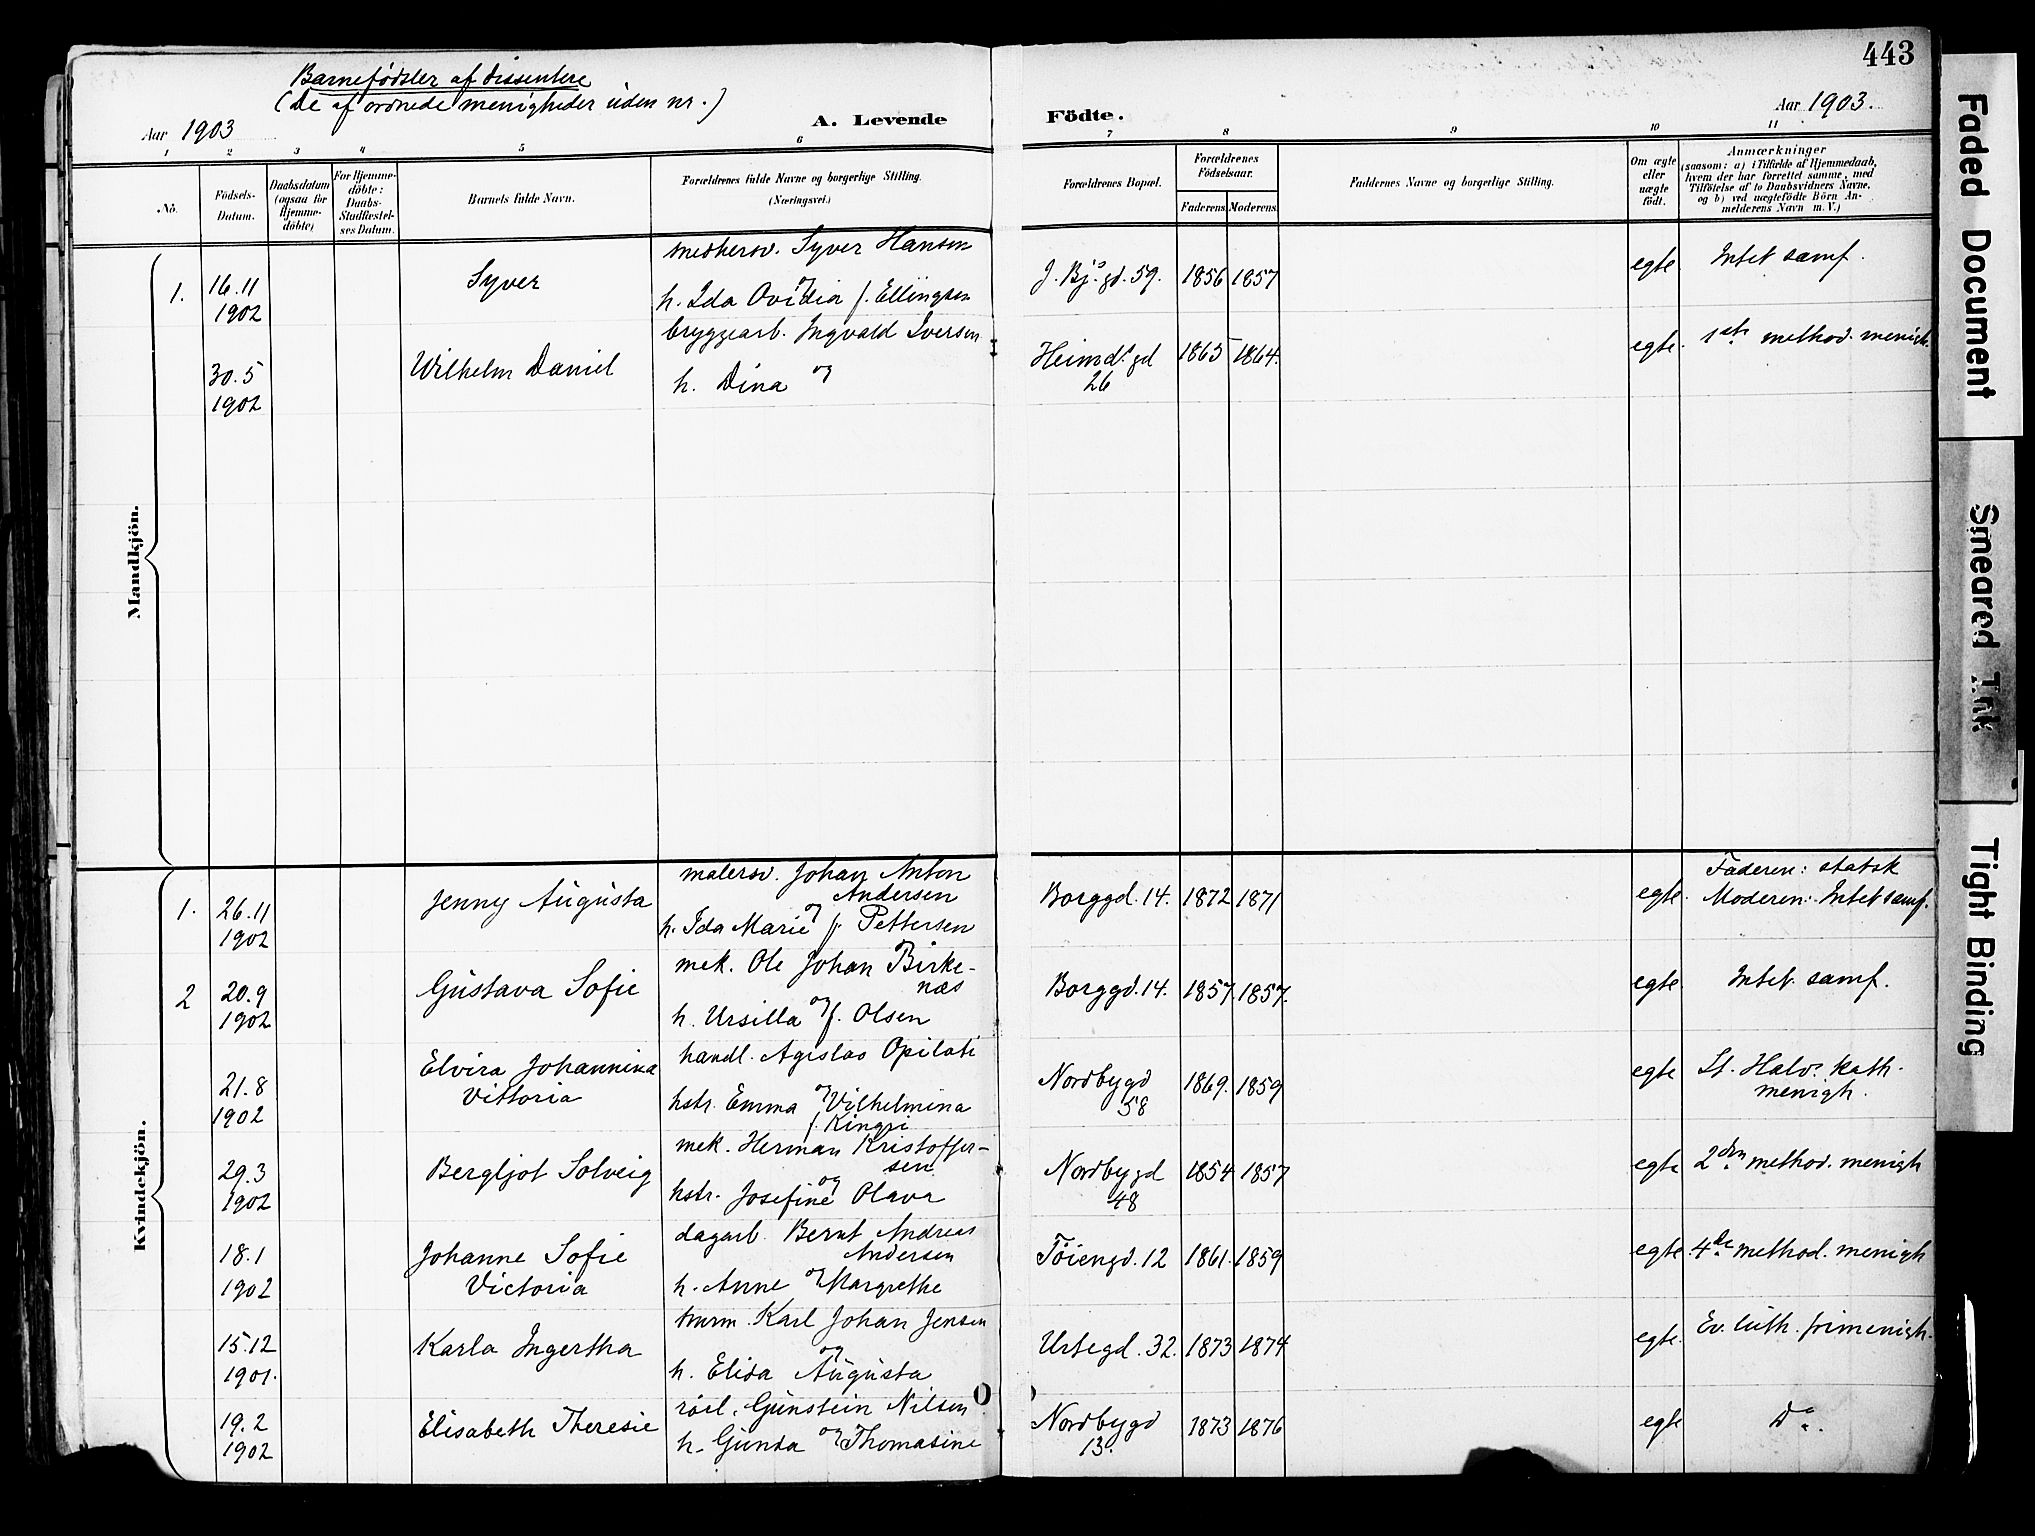 443
Barnefödsler af dissentere
(De af ordnede menigheder uden nr.)
Aar 1903
A. Levende Födte.
Aar 1903.
1 2 3 4 5 6 7 8 9 10 11
No.
Födsels-Datum.
Daabsdatum (ogsaa for Hjemme-döbte)
For Hjemme-döbte: Daabs-Stadfæstel-ses Datum.
Barnets fulde Navn.
Forældrenes fulde Navne og borgerlige Stilling.
(Næringsvei.)
Forældrenes Bopæl.
Forældrenes Födselsaar.
Faderens. Moderens.
Faddernes Navne og borgerlige Stilling.
Om ægte eller uægte födt.
Anmærkninger
(saasom: a) i Tilfælde af Hjemmedaab,
hvem der har forrettet samme, med
Tilföielse af to Daabsvidners Navne,
og b) ved uægtefödte Börn An-
melderens Navn m. V.)
Mandkjön.
1. 16.11 1902 Syver
Syver Hansen
og
h. Ida Ovidia f. Ellingsen
J. Bj's gd. 59. 1856 1857 egte. Intet samf.
30.5 1902 Wilhelm Daniel
bryggearb. Ingvald Iversen
og
h. Dina
Heimd.s gd 26 1865 1864. egte. 1ste method. menigh.
Kvindekjön.
1. 26.11 1902 Jenny Augusta
malersv. Johan Anton
Andersen
og
h. Ida Marie f. Pettersen
Borggd. 14. 1872 1871 egte. Faderen: statsk
Moderen: Intet samf.
2 20.9 1902 Gustava Sofie
mek. Ole Johan Birke-
næs
og
h. Ursilla f. Olsen
Borggd. 14. 1857. 1857. egte Intet samf.
21.8 1902 Elvira Johannina
Vittoria
handl. Agislao Opilati
og
hstr. Emma Vilhelmina
f. Kingri
Nordbygd 58 1869. 1859 egte St. Halv.s kath.
menigh.
29.3 1902 Bergljot Solveig
mek. Herman Kristoffer-
sen
og
hstr. Josefine Olava
Nordbygd 48 1854 1857 egte 2den method. menigh
18.1 1902 Johanne Sofie
Victoria
dagarb. Bernt Andreas
Andersen
og
h. Anne Margrethe
Töiengd. 12 1861. 1859 egte. 4de method. menigh
15.12 1901. Karla Ingertha
murm. Karl Johan Jensen
og
h. Elida Augusta
Urtegd. 32. 1873 1874 egte. Ev. luth. frimenigh.
19.2 1902 Elisabeth Theresie
Gunstein Nilsen
og
h. Gunda Thomasine
Nordbygd 13. 1873 1876 egte Do.
Faded Document
Smeared Ink
Tight Binding